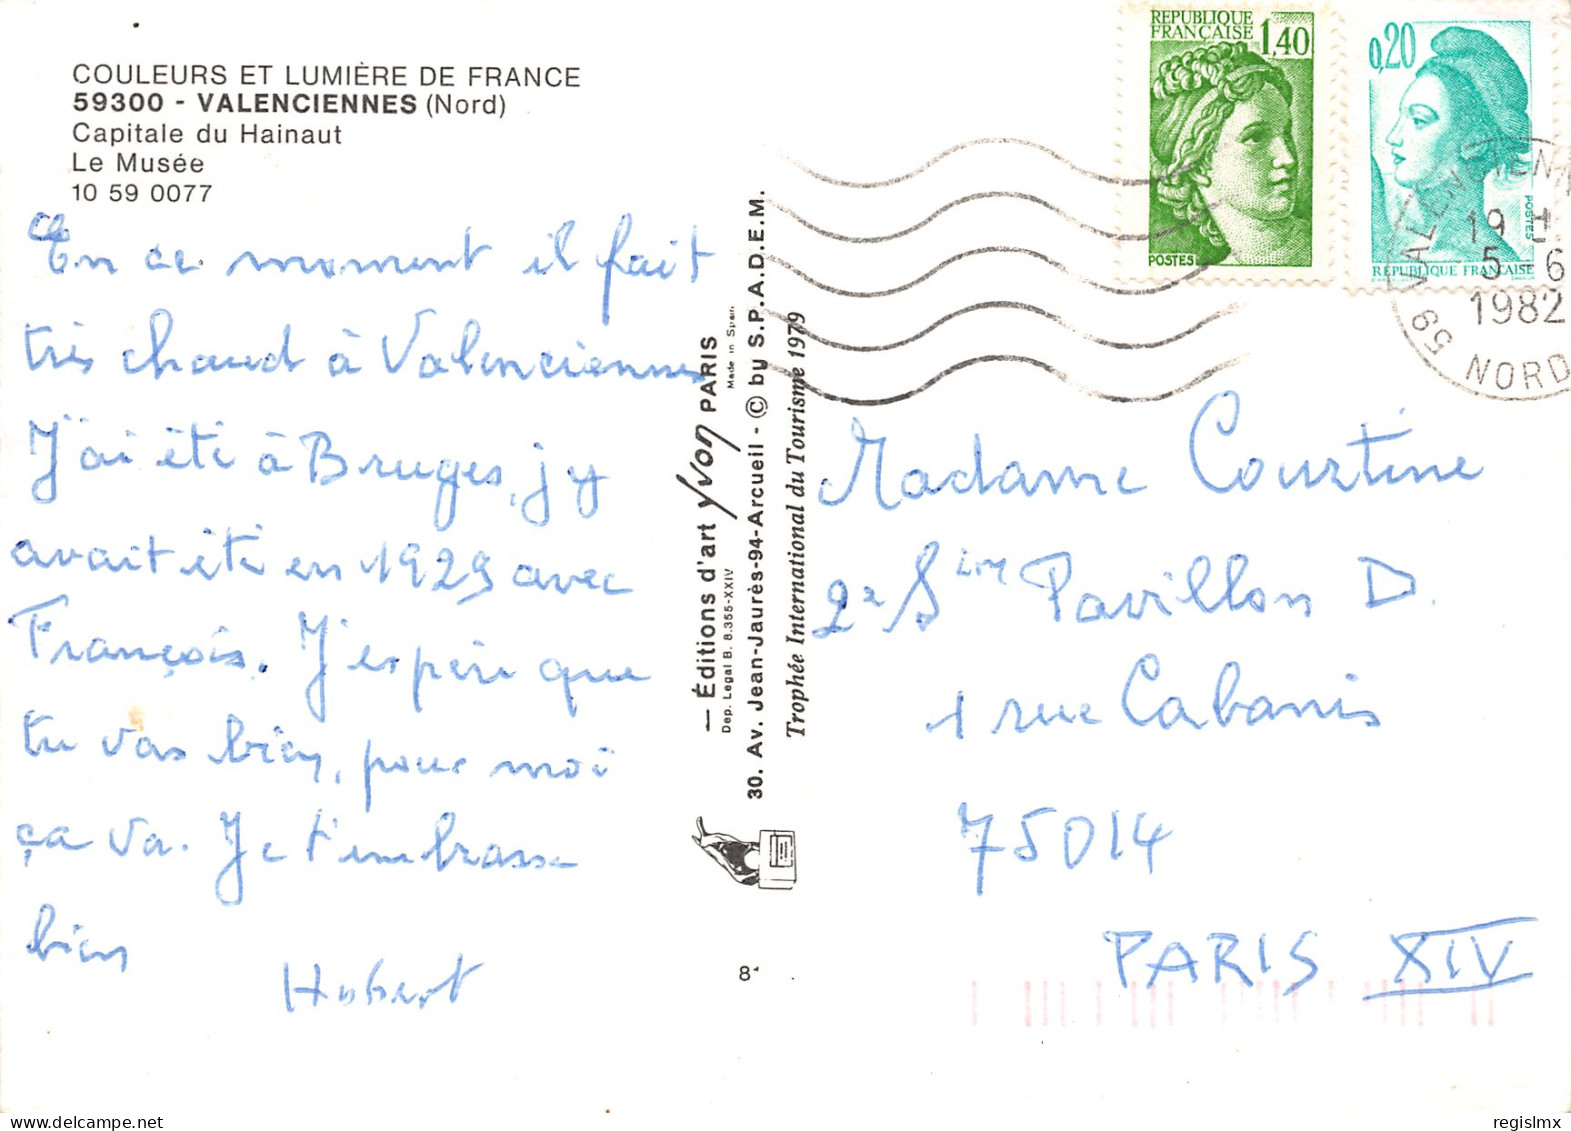 COULEURS ET LUMIÈRE DE FRANCE
59300 - VALENCIENNES (Nord)
Capitale du Hainaut
Le Musée
10 59 0077
En ce moment il fait
très chaud à Valenciennes
J'ai été à Bruges, j'y
avait été en 1929 avec
François. J'espère que
tu vas bien, pour moi
ça va. Je t'embrasse
bien
Hubert
— Éditions d'art yvon PARIS
Dep. Legal B. 8.355-XXIV
Made in Spain
30. Av. Jean-Jaurès-94-Arcueil - © by S.P.A.D.E.M.
Trophée International du Tourisme 1979
8
REPUBLIQUE
FRANÇAISE
1,40
POSTES
0,20
POSTES
RÉPUBLIQUE FRANÇAISE
59 VALENCIENN
19 H
5 - 6
1982
NORD
Madame Courtine
Pavillon D
1 rue Cabanis
75014
PARIS XIV
regislmx
delcampe.net